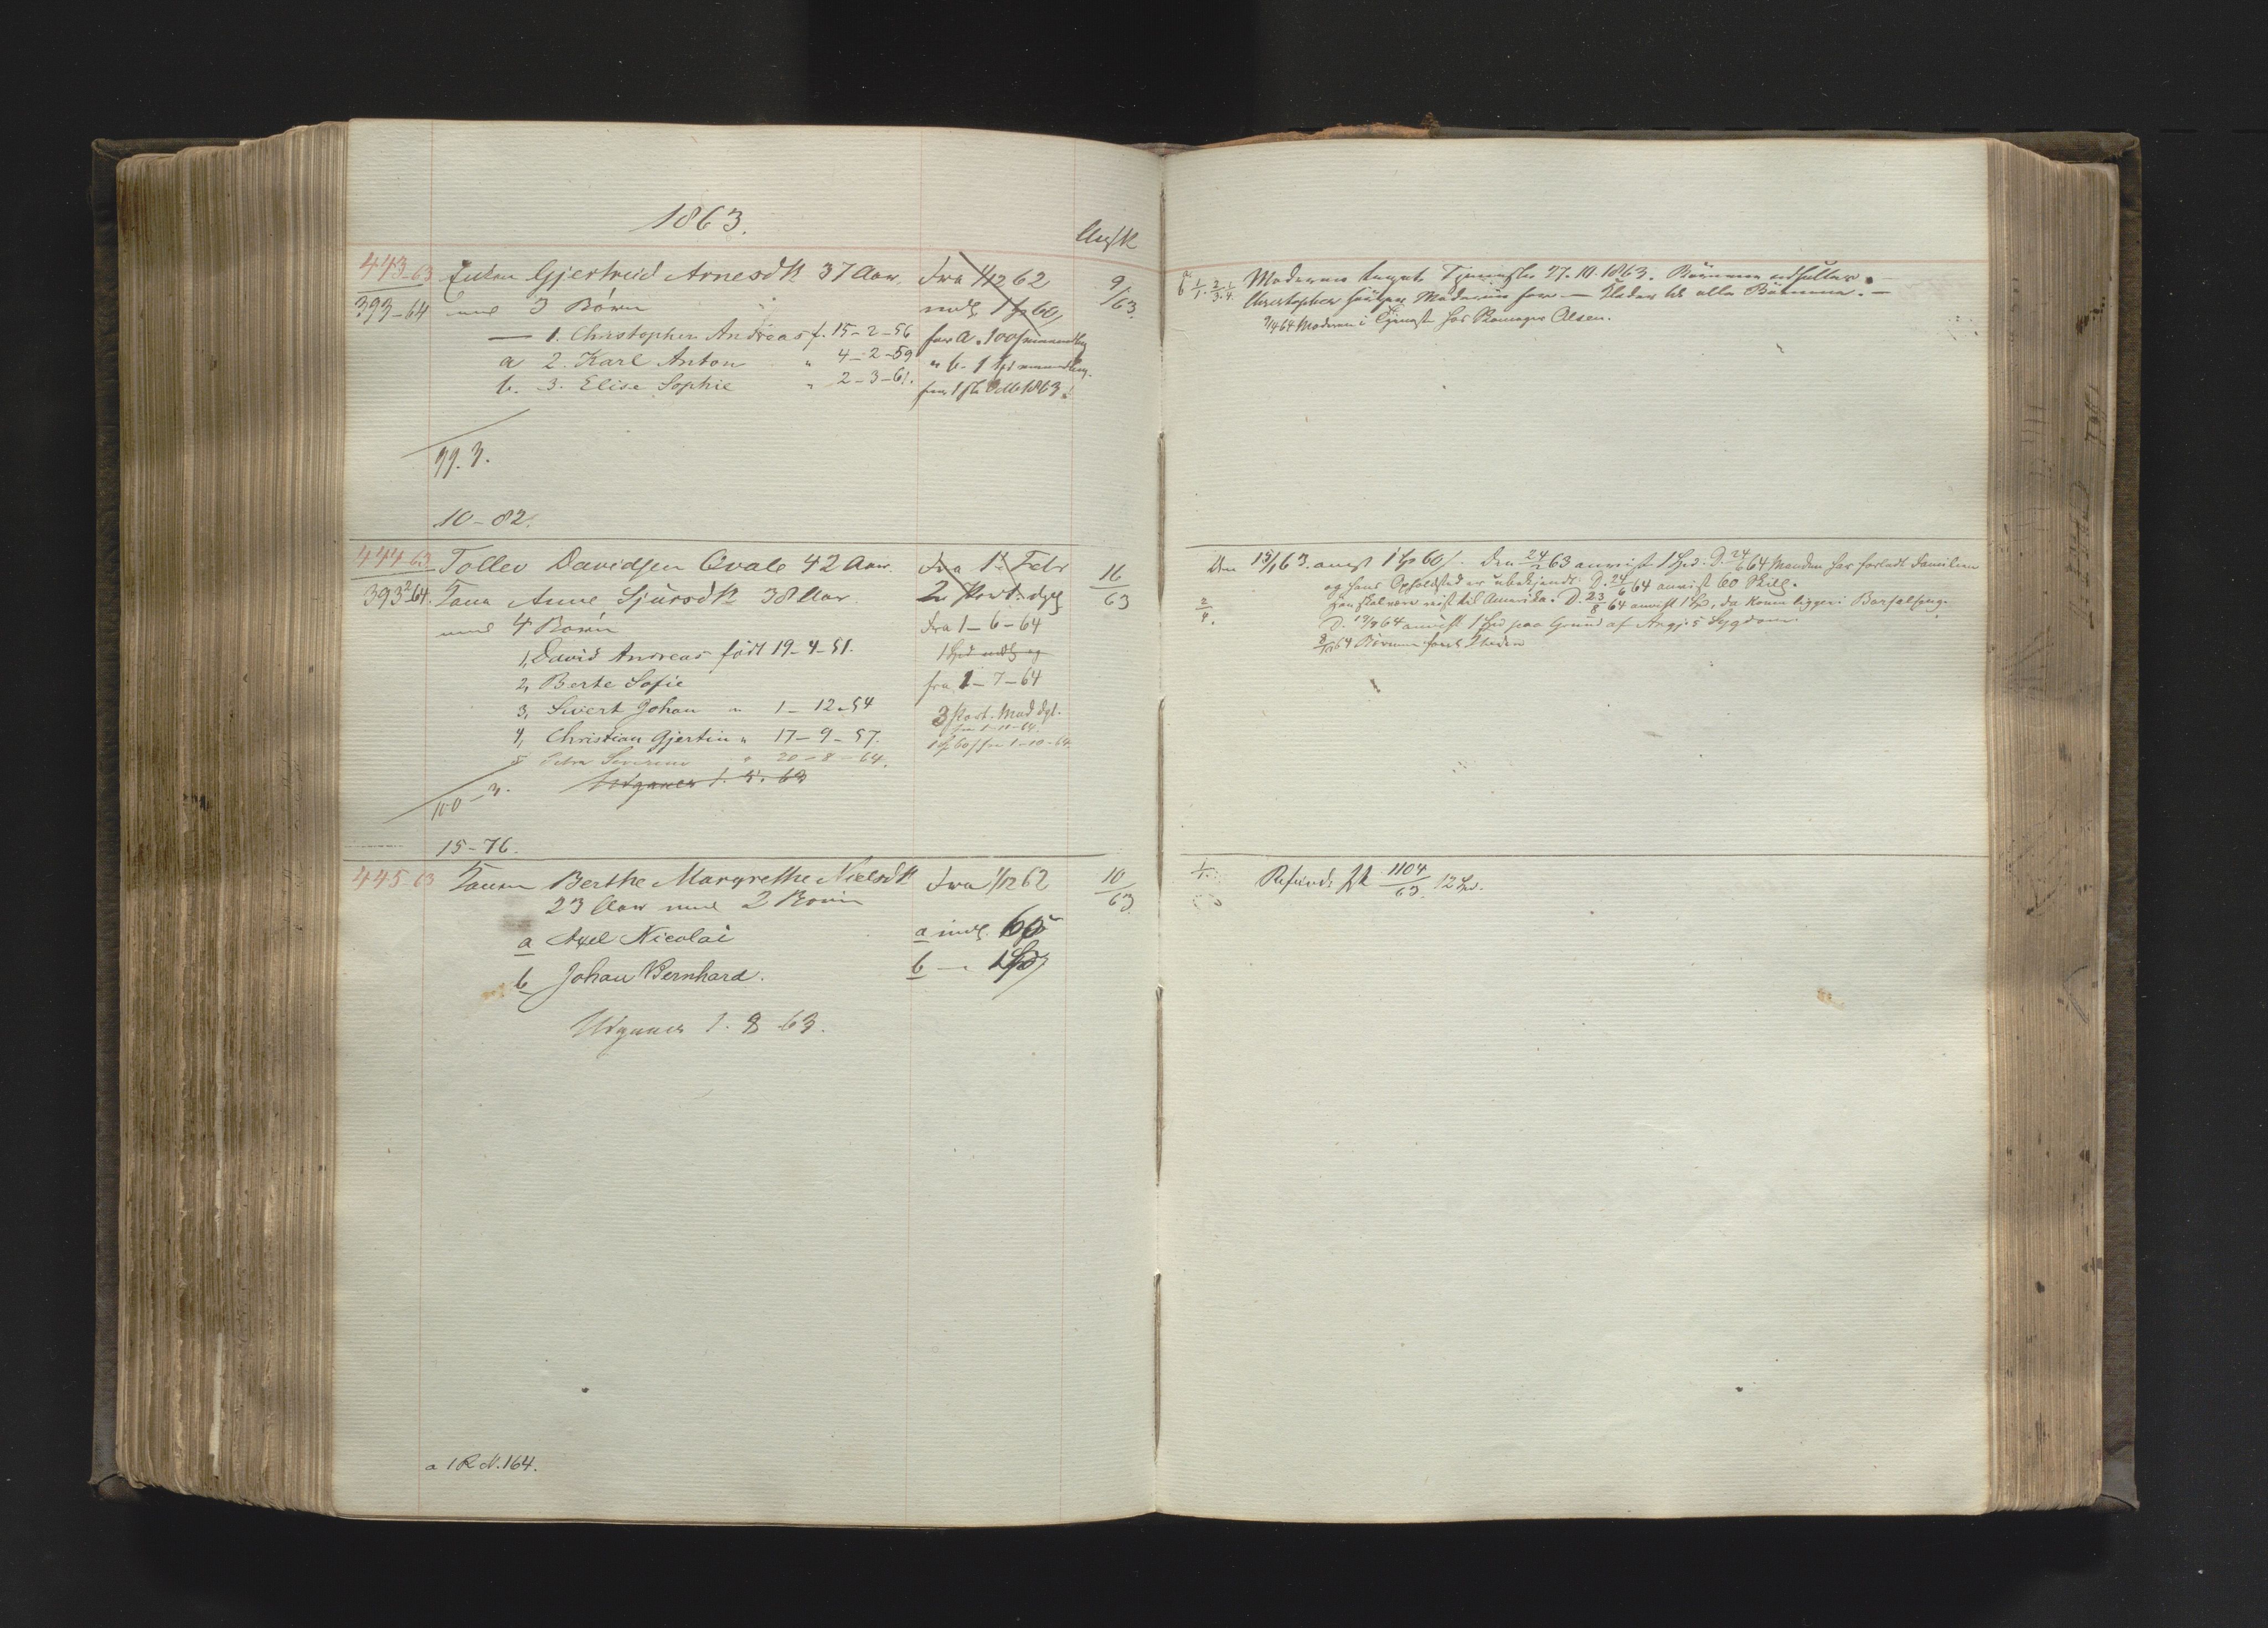 1863.
443-63 Enken Gjertrud Arnesdtr 37 Aar. Fra 1/12 62 9/63
393-64 med 3 Børn mdl 1 60
— 1. Christopher Andreas f. 15-2-56 for a. 100 maanedlig
a 2. Karl Anton " 4-2-59 " b. 1 maanedlig.
b. 3. Elise Sophie " 2-3-61. fra 1 1863.
99. 3.
10-82.
444-63 Tollev Davidsen Qvale 42 Aar. Fra 1 Febr 16/63
393 2-64. Kone Anne Sjursdtr 38 Aar 2 Port. dgl
med 4 Børn Fra 1-6-64
1, David Andreas født 19-4-51. 1 Spd mdl og
2, Berte Sofie fra 1-7-64
3, Sivert Johan " 1-12-54 3 Port. Mad dgl.
4, Christian Gjertin " 17-9-57. fra 1-11-64.
5 Severine " 20-8-64. 1 60 fra 1-10-64
Udgaaer 1. 5. 63
100-3.
15-76.
445-63 Konen Berthe Margrethe Nielsdtr Fra 1/12 62 10/63
23 Aar med 2 Børn
a Axel Nicolai a mdl. 60
b Johan Bernhard. b — 1 Spd
Udgaaer 1. 8 63.
a 1 R N. 164.
Moderen Tjeneste 27.10.1863. Børnene udsættes.
Christopher Moderen for — Klæder til alle Børnene. —
9/4 64 Moderen i Tjeneste hos Olsen.
Den 15/1 63. anvist 1 60. Den 24/2 63 anvist 1 Spd. D. 24/6 64 Manden har forladt Familien
og hans Opholdssted er ubekjendt. D. 24/6 64 anvist 60 Skill.
2/4. Han skal være reist til Amerika. D. 23/8 64 anvist 1 Spd, da Konen ligger i Barselseng.
D. 64 anvist 1 Spd paa Grund af Sygdom
64 Børnene
1/1. Refund. 1104/63. 12 Spd.